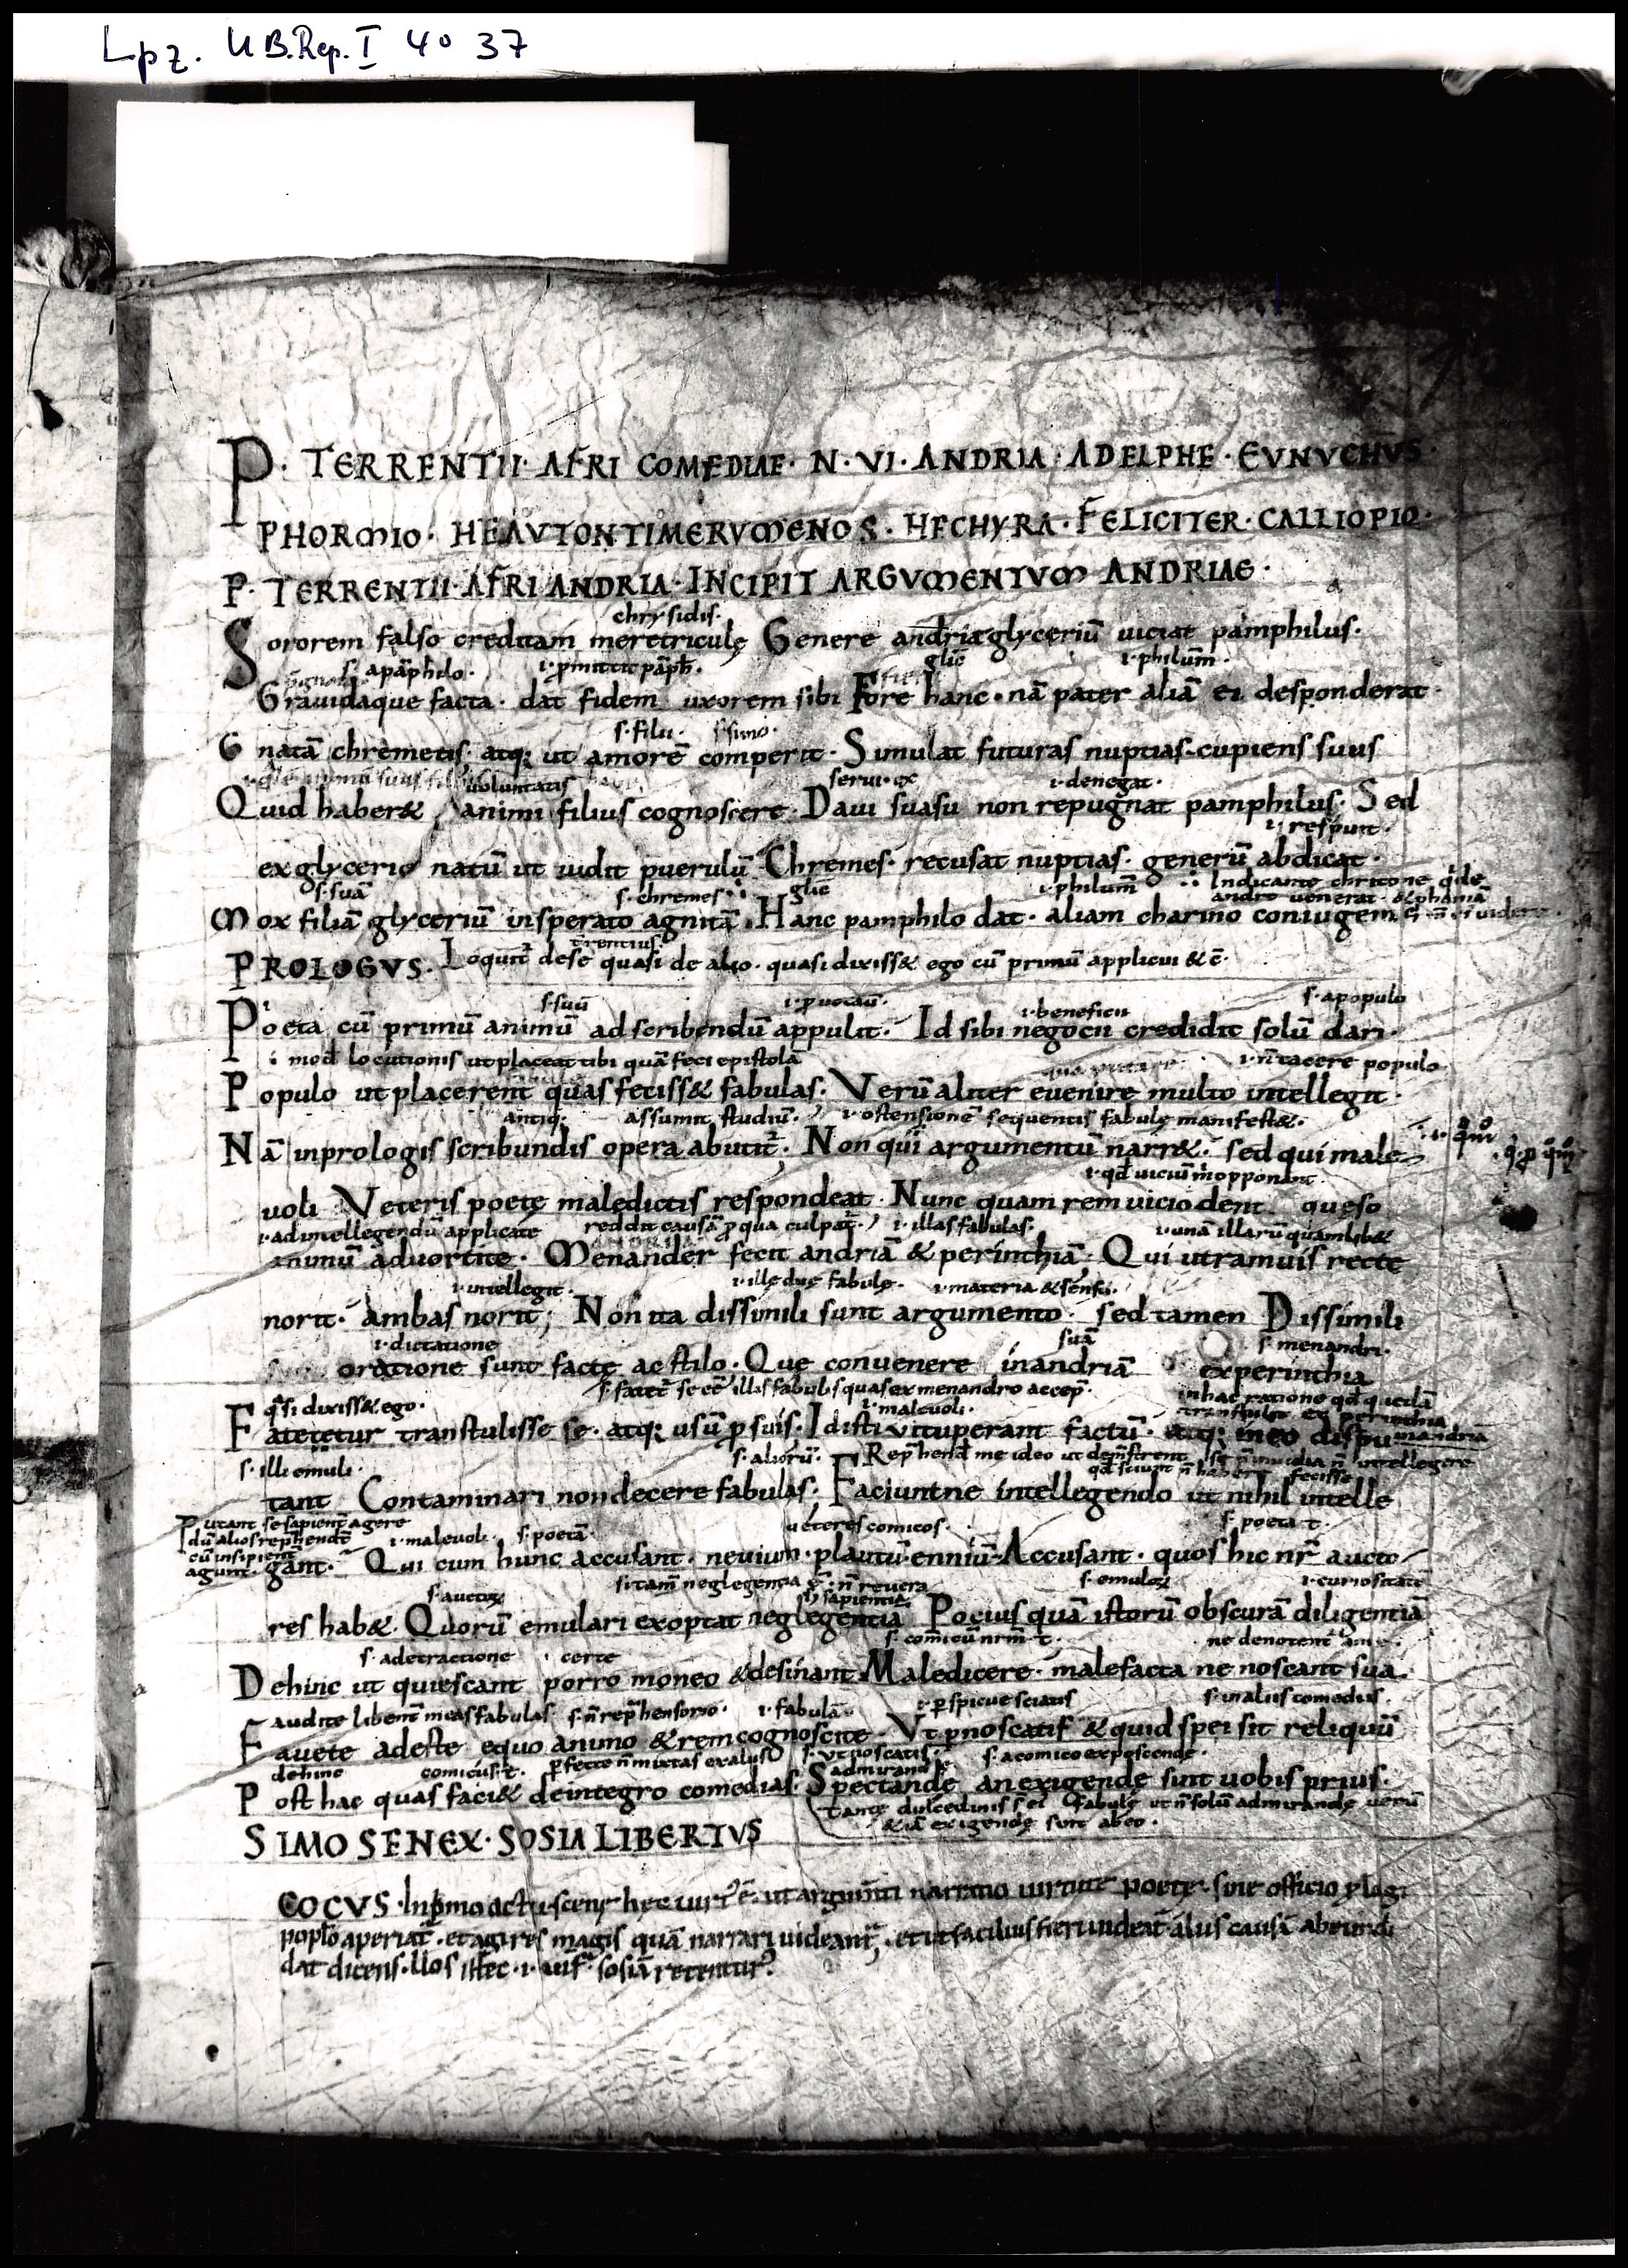 Lpz. UB. Rep. I 4° 37
P. TERRENTII · AFRI COMEDIAE · N · VI · ANDRIA · ADELPHE · EVNVCHVS ·
PHORMIO · HEAVTONTIMERVMENOS · HECHYRA · FELICITER · CALLIOPIO ·
P · TERRENTII · AFRI ANDRIA · INCIPIT ARGVMENTVM ANDRIAE ·
chrysidis ·
Sororem falso creditam meretriculę Genere andriæ glyceriū uiciat pamphilus ·
s· apāphilo · ı· p̄mittit pāph̄ · glic̄ ı· philum̄ ·
Grauidaque facta · dat fidem uxorem sibi Fore hanc · nā pater aliā ei desponderat ·
s· filii · s· simo ·
Gnatā chremetis · atq; ut amorē comperit · Simulat futuras nuptias · cupiens suus
uoluntatis serui · ı· denegat ·
Quid haber& animi filius cognoscere · Daui suasu non repugnat pamphilus · Sed
ı· respuit ·
ex glycerio natū ut uidit puerulū Chremes · recusat nuptias · generū abdicat ·
s· suā s· chremes · glic̄ ı· philum̄ Indicante chritone q̄ de
andro uenerat · & phaniā
Mox filiā glyceriū insperato agnitā · Hanc pamphilo dat · aliam charino coniugem
t̄rentius
PROLOGVS · Loquit̄ dese quasi de alio · quasi dixiss& ego cū primū applicui & c̄ ·
s· suū ı· p̄uocau̅ · ı· beneficii s· apopulo
Poeta cū primū animū ad scribendū appulit · Id sibi negocii credidit solū dari ·
i mod̄ locutionis ut placeat tibi quā feci epistolā ı· n̄ tacere populo
Populo ut placerent quas feciss& fabulas · Verū aliter euenire multo intellegit ·
antiq; assumit studiū · ı· ostensionē sequentis fabulę manifest& ·
Nā inprologis scribundis opera abutit̄ · Non qui argumentū narr& · sed qui male
ı· qd̄ uiciū m̄ opponant ·
uoli Veteris poetę maledictis respondeat · Nunc quam rem uicio dent queso
ı· ad intellegendū applicate reddit causā p̄ qua culpat̄ · ı· illas fabulas · ı· unā illarū quamlib&
animū aduortite · Menander fecit andriā & perinthiā · Qui utramuis recte
ı· intellegit · ı· illę duę fabulę · ı· materia & sensu ·
norit · ambas norit ; Non ita dissimili sunt argumento · sed tamen Dissimili
ı· dictatione suā s· menandri ·
oratione sunt factę ac stilo · Que conuenere inandriā experinthia
s· fatet̄ se cē illis fabulis quas ex menandro accep̄ ·
q̄si dixiss& ego · ı· maleuoli · in hac ratione qd̄ quedā
transtulit ex perinthia
inandriā
Fatetetur transtulisse se · atq; usū p̄ suis · Id isti uituperant factū · atq; ineo dispu
s· illi emuli · s· aliorū · Rep̄hend̄ me ideo
tant Contaminari nondecere fabulas · Faciuntne intellegendo ut nihil intelle
Putant se sapient̄ agere
dū alios rep̄hend̄t
cū insipient̄
agunt · ı· maleuoli · s· poetā · ueteres comicos · s· poeta t̄ ·
gant · Qui cum hunc accusant · neuium · plautū · enniū · Accusant · quos hic nr̄ aucto
s· auctoꝝ s· emuloꝝ ı· curiositatē
res hab& · Quorū emulari exoptat neglegentiā Pocius quā istorū obscurā diligentiā
s· adetractione · certe
Dehinc ut quiescant porro moneo & desinant Maledicere · malefacta ne noscant sua ·
audite libent̄ meas fabulas s· n̄ rep̄hensorio · ı· fabulā ı· p̄spicue sciatis s· inaliis comediis ·
Fauete adeste equo animo & rem cognoscite · Vt p̄noscatis & quid spei sit reliquū
dehinc comicus t̄ · p̄fecte n̄ mixtas exaliis s· ut noscatis · s· acomico exposcende ·
Post hac quas faci& deintegro comedias · Spectande an exigende sint uobis prius ·
tantę dulcedinis fabulę ut n̄ solū admirandę uerū
& iā exigendę sunt abeo ·
SIMO SENEX · SOSIA LIBERTVS
COCVS · In p̄mo actu scenę hec uirt̄ ē · ut argum̄ti narratio uirtute poetę · siue officio
poplō aperiat̄ · et agi res magis quā narrari uideant̄ · et ut facilius fieri uideat̄ · aliis causā
dat dicens · Uos istec ·